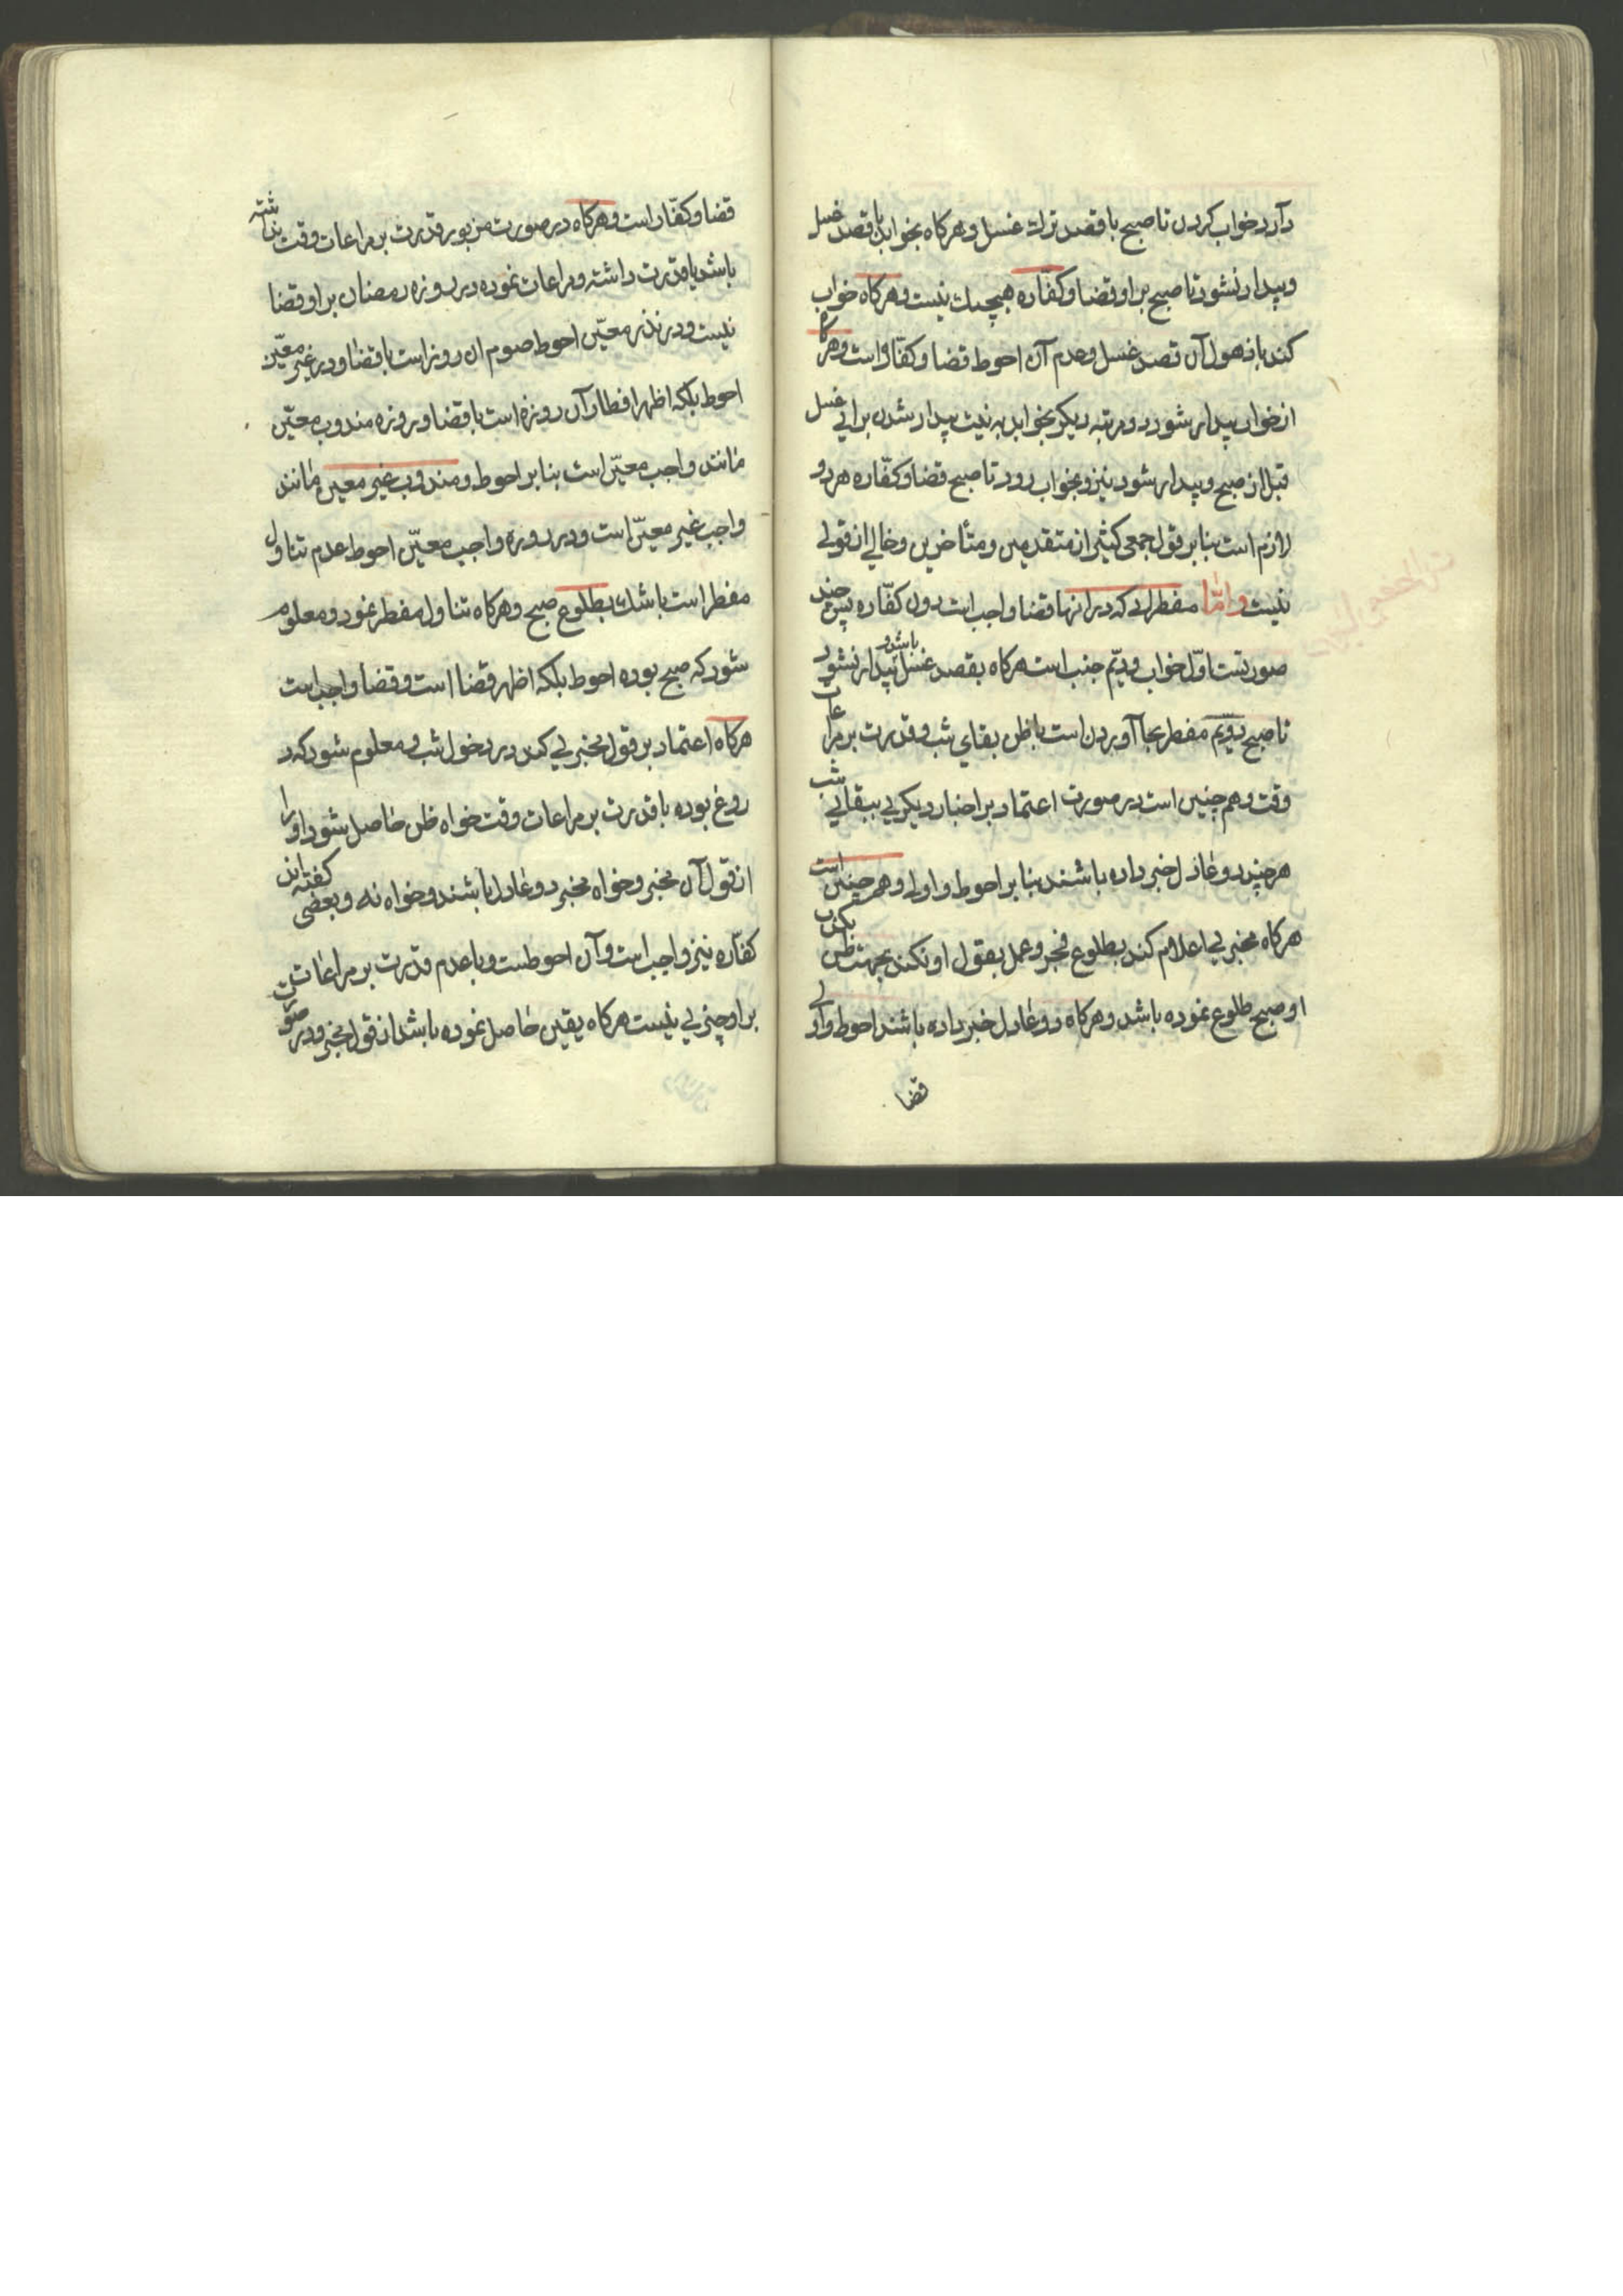 دارد خواب کردن تا صبح با قصد ترك غسل و هرکاه بخوابد با قصد غسل
و بیدار نشود تا صبح بر او قضا و کفّاره هیچیك نیست و هرکاه خواب
کند با ذهول آن قصد غسل و عدم آن احوط قضا و کفّاره است و هرکاه
از خواب بیدار شود و مرتبه دیکر بخوابد به نیت بیدار شدن برای غسل
قبل از صبح و بیدار شود نیز و بخواب رود تا صبح قضا و کفّاره هر دو
لازم است بنا بر قول جمعی کثیر از متقدمین و متأخرین و خالی از قوتی
نیست و امّا مفطراتی که در انها قضا واجب است بدون کفّاره پس چند
صورتست اوّل خواب دویّم جنب است هرکاه بقصد غسل باشد و بیدار نشود
تا صبح دویّم مفطر بجا آوردن است با ظن بقای شب و قدرت بر مراعات
وقت و هم چنین است در صورت اعتماد بر اخبار دیکری ببقای شب
هر چند دو عادل خبر داده باشند بنا بر احوط و اولی و هم چنین است
هرکاه مخبری اعلام کند بطلوع فجر و عمل بقول او نکند بجهت ظن بکذب
او و صبح طلوع نموده باشد و هرکاه دو عادل خبر داده باشند احوط و اولی
قضا
قضا و کفّاره است و هرکاه در صورت مزبور قدرت بر مراعات وقت نداشته
باشد یا قدرت داشته و مراعات نموده در روزه رمضان بر او قضا
نیست و در نذر معیّن احوط صوم ان روز است با قضا و در غیر معیّن
احوط بلکه اظهر افطار آن روزه است با قضا و روزه مندوب معیّن
مانند واجب معیّن است بنا بر احوط و مندوب غیر معین مانند
واجب غیر معیّن است و در روزه واجب معیّن احوط عدم تناول
مفطر است با شك بطلوع صبح و هرکاه تناول مفطر نمود و معلوم
شود که صبح بوده احوط بلکه اظهر قضا است و قضا واجب است
هرکاه اعتماد بر قول مخبری کند در دخول شب و معلوم شود که در
روغ بوده با قدرت بر مراعات وقت خواه ظن حاصل شود او را
از قول آن مخبر و خواه مخبر دو عادل باشند و خواه نه و بعضی کفته اند
کفّاره نیز واجب است و آن احوطست و با عدم قدرت بر مراعات
بر او چیزی نیست هرکاه یقین حاصل نموده باشد از قول مخبر و در صورت